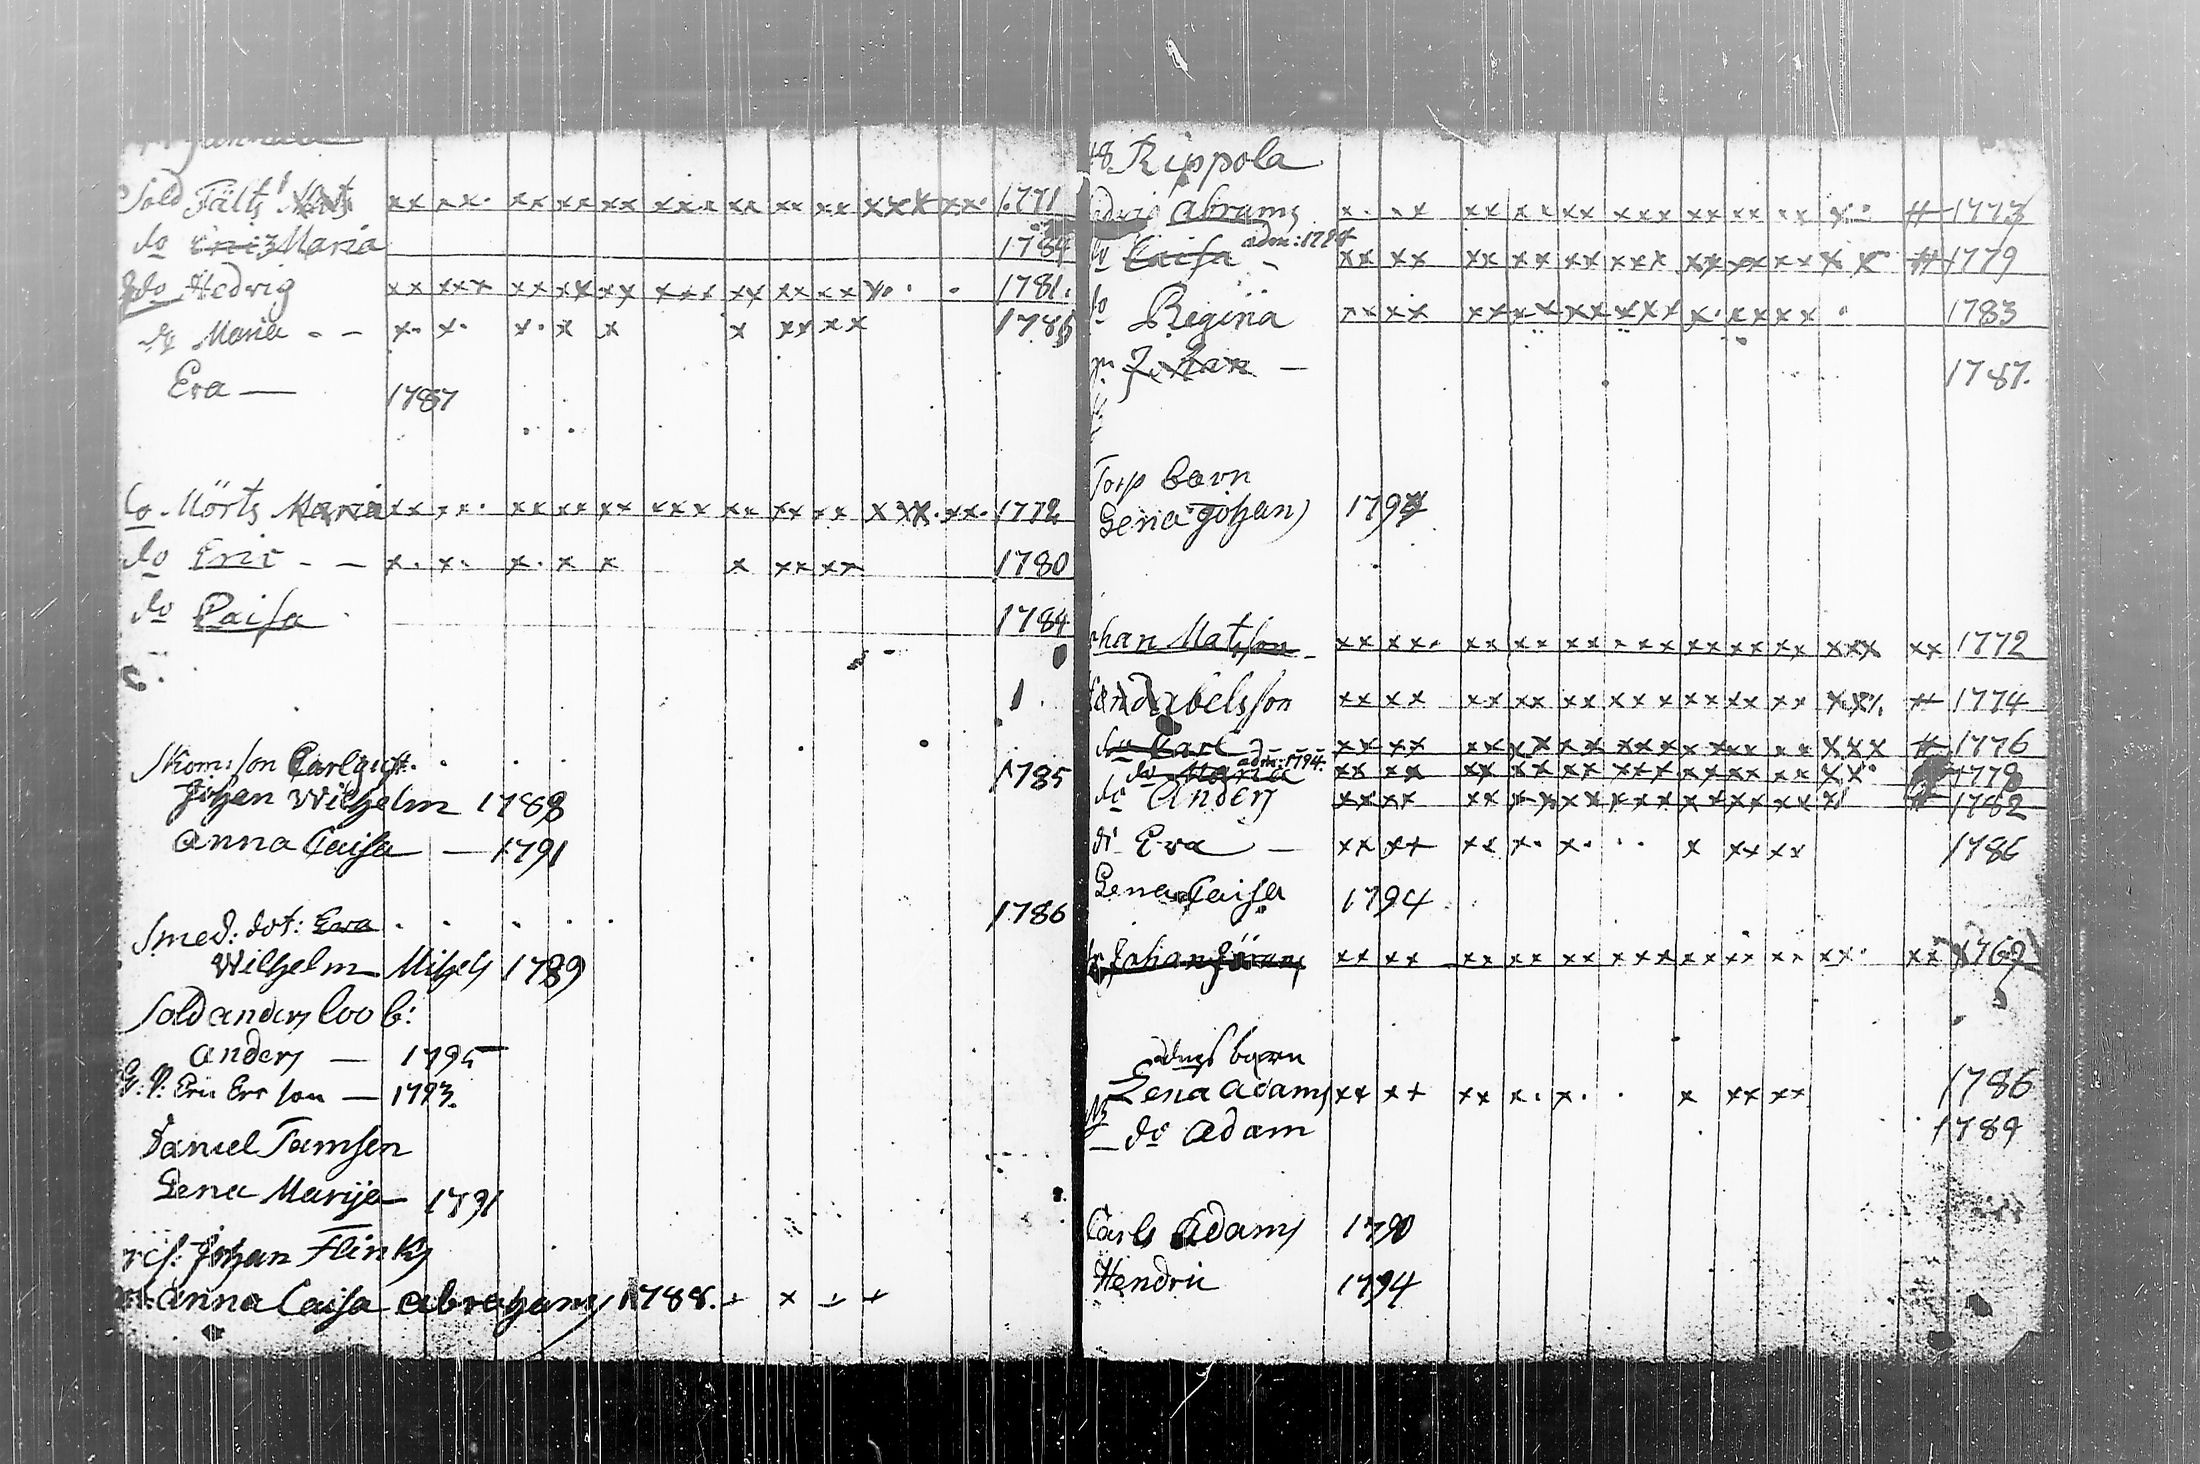 Sold Fälts xx xx. xx xx xx xxx xx xx xx xxx xx. 1771
do Maria 1784
do Hedvig xx xxx xx xx xx xxx xx xx xx x. . . 1781.
do Maria - - x. x. x. x x x xx xx
Eva — 1787
do. Mörts Maria xx xx. xx xx xx xxx xx xx xx xxx. xx. 1772
do Eric - - x. x. x. x x x xx xx 1780
do Caisa 1784
Skom: son Carl 1785
Johan Wilhelm 1788
Anna Caisa — 1791
Smed: dot: Eva . . . . . 1786
Wilhelm Mihels 1789
Sold anders loo b:
Anders — 1795
Eric Ers son — 1793.
Daniel Tamsen
Lena Marija 1791
Johan Flinks
Anna Caisa Abrahams 1788. + x + +
48. Rippola
Abrams x. xx xx xx xx xxx xx xx xx x. # 1773
do Caisa adm: 1794 xx xx xx xx xx xxx xx xx xx x x # 1779
do Regina xx xx xx xx xx xxx x. xx xx . 1783
1787.
Torp barn
Lena Johans 1794
Johan Matsson xx xx. xx xx xx xxx xx xx xx xxx xx 1772
Abelsson xx xx xx xx xx xxx xx xx xx xxx # 1774
do Carl xx xx xx xx xx xxx xx xx xx xxx # 1776
do Maria adm: 1794. xx xx xx xx xx xxx xx xx xx xx. 1778
do Anders xx xx xx xx xx xxx xx xx xx x # 1782
do Eva — xx x+ xx x. x. . . x xx xx 1786
Lena Caisa 1794
Johan Görans xx xx xx xx xx xxx xx xx xx xx. xx 1769
barn
Lena Adams xx x+ xx x. x. . x xx xx 1786
do Adam 1789
Carls Adams 1790
Hendric 1794